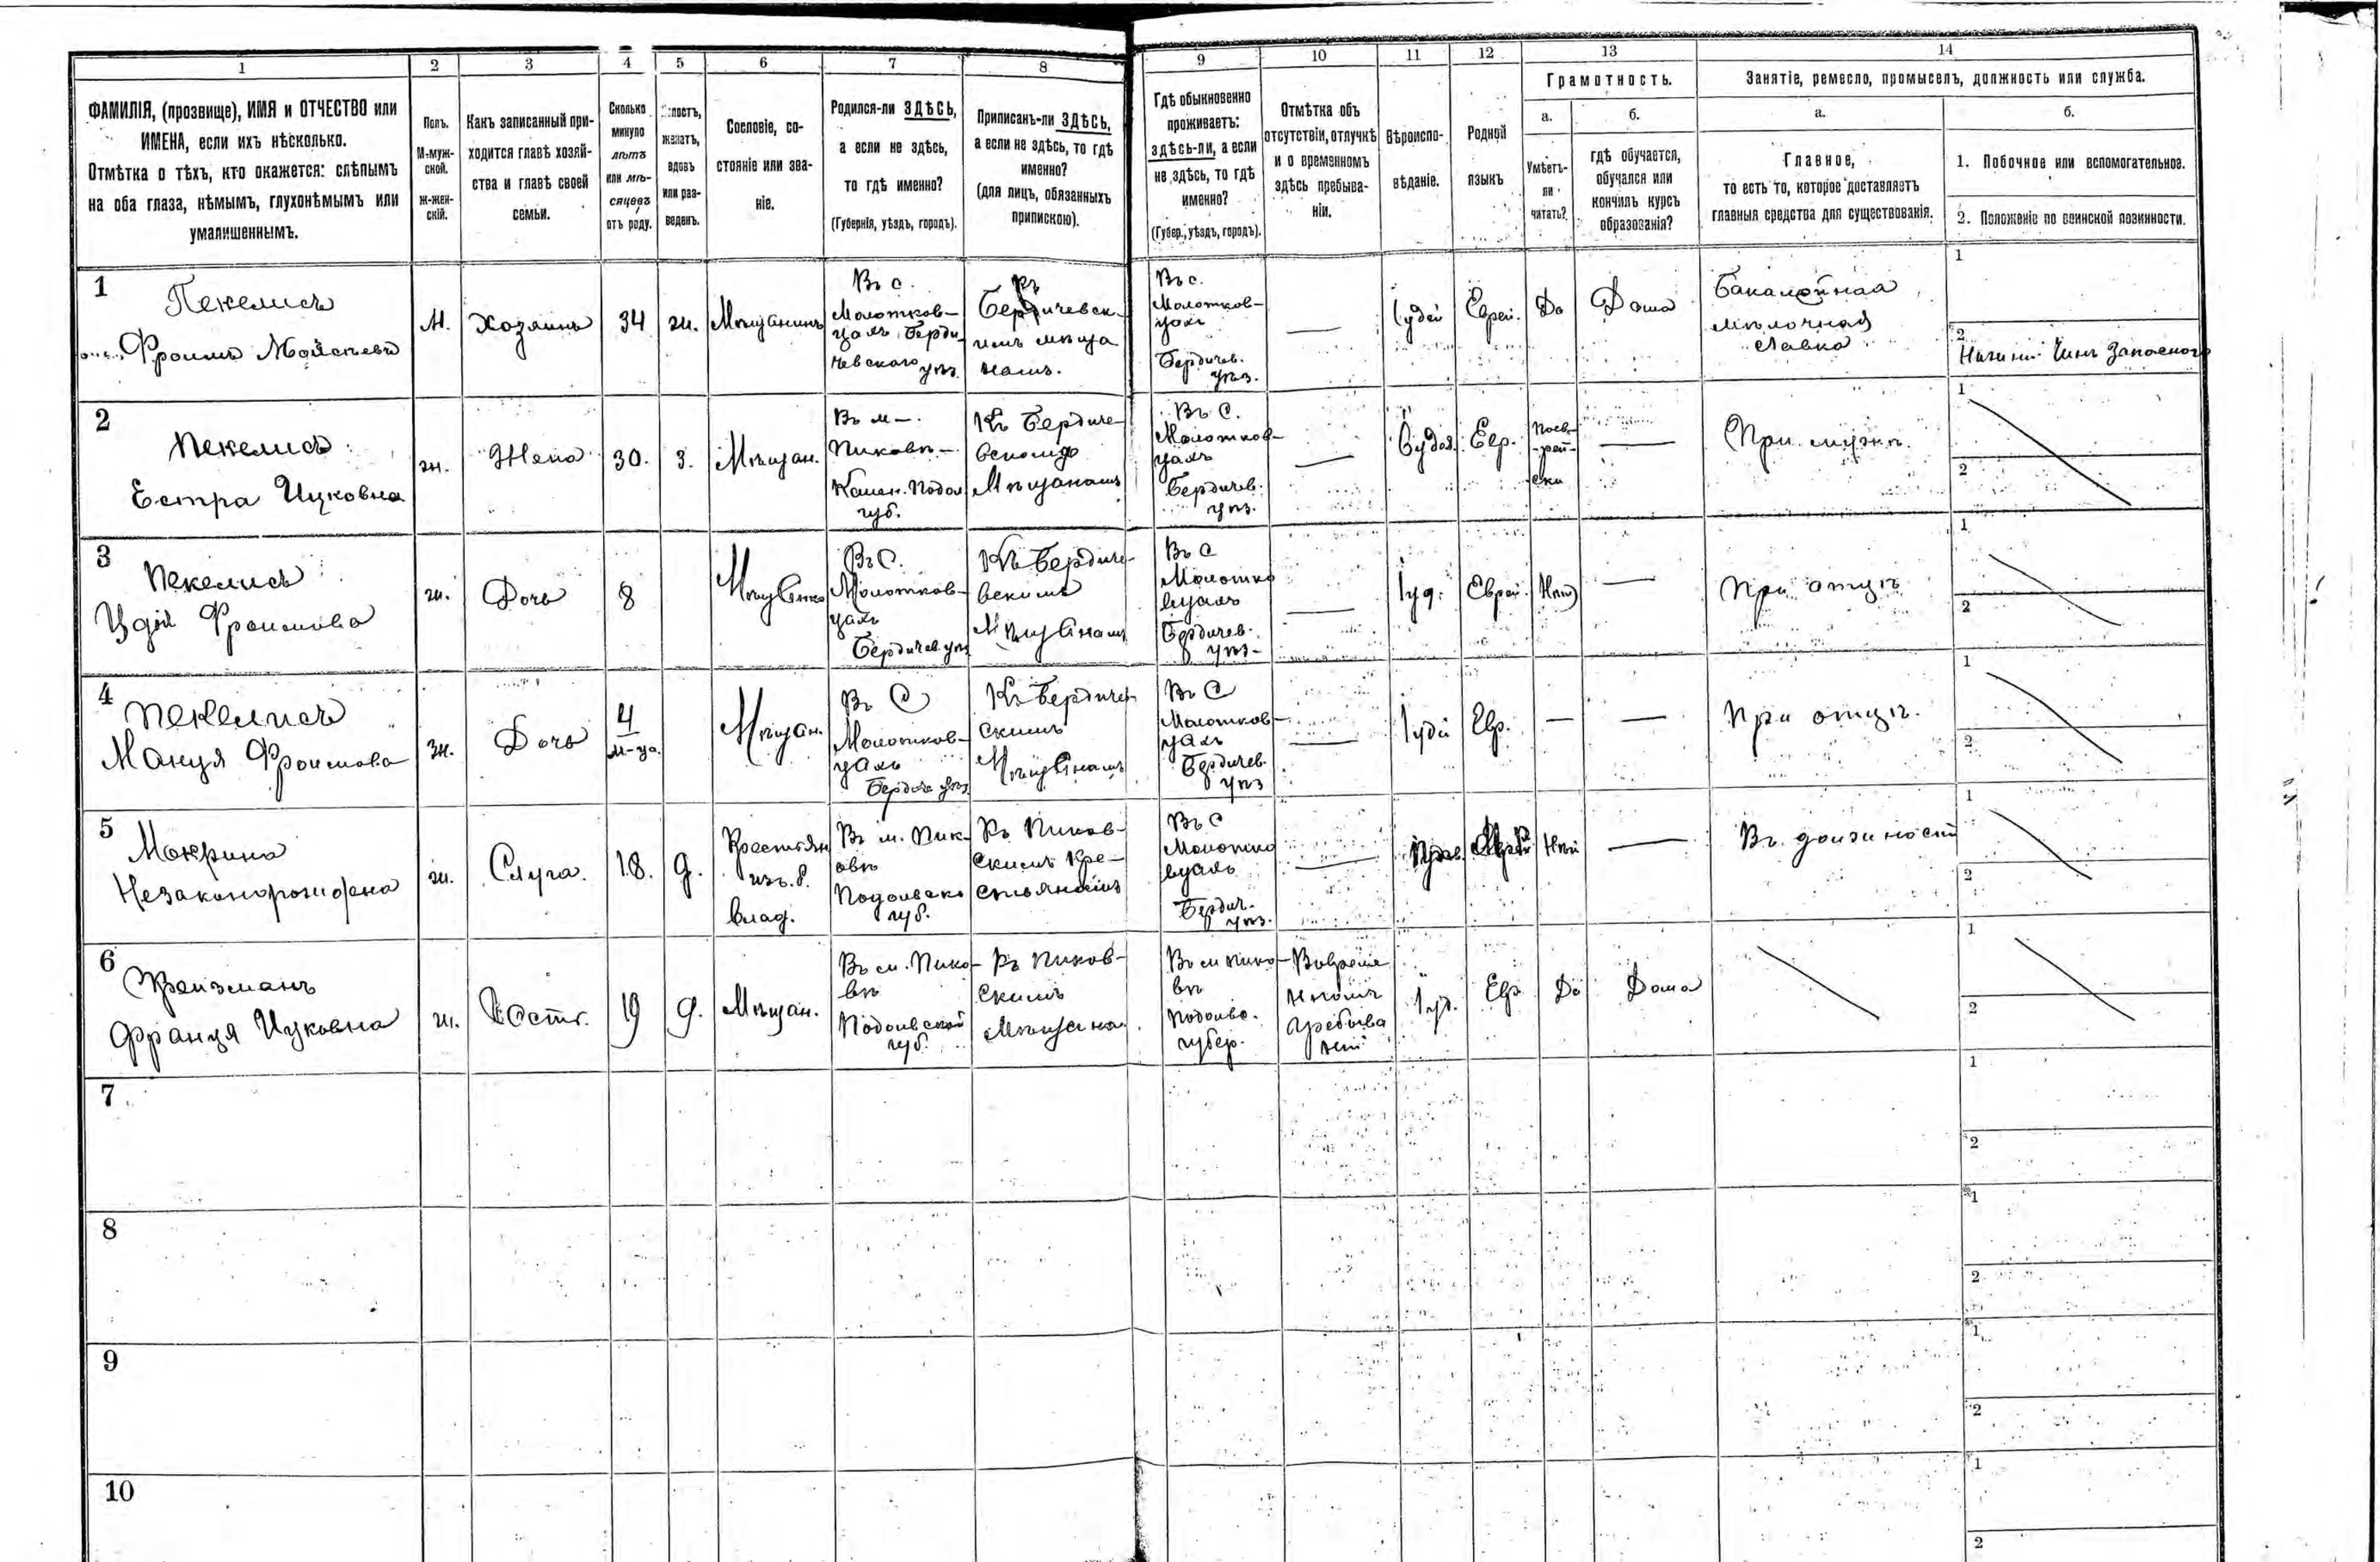 1
2
3
4
5
6
7
8
9
10
11
12
13
14
ФАМИЛІЯ, (прозвище), ИМЯ и ОТЧЕСТВО или
ИМЕНА, если ихъ нѣсколько.
Отмѣтка о тѣхъ, кто окажется: слѣпымъ
на оба глаза, нѣмымъ, глухонѣмымъ или
умалишеннымъ.
Полъ.
М-муж-
ской.
ж-жен-
скій.
Какъ записанный при-
ходится главѣ хозяй-
ства и главѣ своей
семьи.
Сколько
минуло
лѣтъ
или мѣ-
сяцевъ
отъ роду.
женатъ,
вдовъ
или раз-
веденъ.
Сословіе, со-
стояніе или зва-
ніе.
Родился-ли ЗДѢСЬ,
а если не здѣсь,
то гдѣ именно?
(Губернія, уѣздъ, городъ).
Приписанъ-ли ЗДѢСЬ,
а если не здѣсь, то гдѣ
именно?
(для лицъ, обязанныхъ
припискою).
Гдѣ обыкновенно
проживаетъ:
здѣсь-ли, а если
не здѣсь, то гдѣ
именно?
(Губер., уѣздъ, городъ).
Отмѣтка объ
отсутствіи, отлучкѣ
и о временномъ
здѣсь пребыва-
ніи.
Вѣроиспо-
вѣданіе.
Родной
языкъ
Грамотность.
а.
Умѣетъ-
ли
читать?
б.
гдѣ обучается,
обучался или
кончилъ курсъ
образованія?
Занятіе, ремесло, промыселъ, должность или служба.
а.
Главное,
то есть то, которое доставляетъ
главныя средства для существованія.
б.
1. Побочное или вспомогательное.
2. Положеніе по воинской повинности.
1
Пекелисъ
Фроимъ
М.
Хозяинъ
34
ж.
Мѣщанинъ
Въ с.
Молотков-
цахъ Берди-
чевскаго уѣз.
Къ
Бердичевск-
имъ мѣща
намъ.
Въ с.
Молотков-
цахъ
Бердичев.
уѣз.
—
Іудей
Еврей.
Да
Дома
Бакалейная
мѣлочная
лавка
1
2
Чинъ Запаснаго
2
Пекелисъ
Естра Ицковна
ж.
Жена
30.
З.
Мѣщан.
Въ м-.
Пиковѣ-
Камен. Подол
губ.
Къ Бердиче-
вскимъ
Мѣщанамъ
Въ С.
Молотков-
цахъ
Бердичев.
уѣз.
—
Іудей.
Евр.
Поев-
-рей-
ски
—
При мужѣ.
1
2
3
Пекелисъ
Фроимова
ж.
Дочь
8
Въ С.
Молотков-
цахъ
Бердичев. уѣз
Къ Бердиче-
вскимъ
Мѣщанамъ
Въ С
Молотко
вцахъ
Бердичев.
уѣз-
—
Іуд.
Еврей.
Нѣтъ
—
При отцѣ
1
2
4
Пекелисъ
Манця Фроимова
ж.
Дочь
4
м-ца.
Мѣщан.
Въ С
Молотков-
цахъ
Бердич уѣз
Къ Бердичев
скимъ
Мѣщанамъ
Въ С
Молотков-
цахъ
Бердичев.
уѣз
—
Іудей
Евр.
—
—
При отцѣ.
1
2
5
Макрина
Незаконорождена
ж.
Слуга.
18.
д.
Крестьян
изъ. б.
влад.
Въ м. Пик-
овѣ
Подольско
губ.
Къ Пиков-
скимъ Кре-
стьянамъ
Въ С
Молотко
вцахъ
Бердич.
уѣз.
—
Прав.
Нѣтъ
—
1
2
6
Франця Ицковна
ж.
19
д.
Мѣщан.
Въ м. Пико-
вѣ
Подольской
губ.
Къ Пиков-
скимъ
Мѣщана
Въ м Пико-
вѣ
Подольс.
губер.
Іуд.
Евр
Да
Дома
1
2
7
1
2
8
1
2
9
1
2
10
1
2